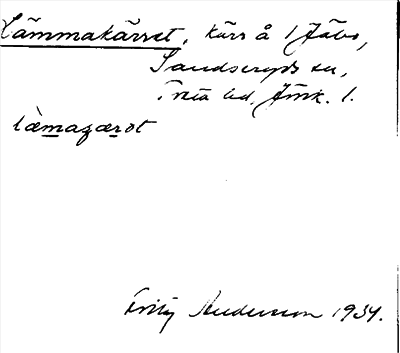 Lämmakärret, kärr å 1 Jäbo,
Sandseryds sn,
Tveta hd, Jönk. l.
làmagærot
Fritz Andersson 1934.